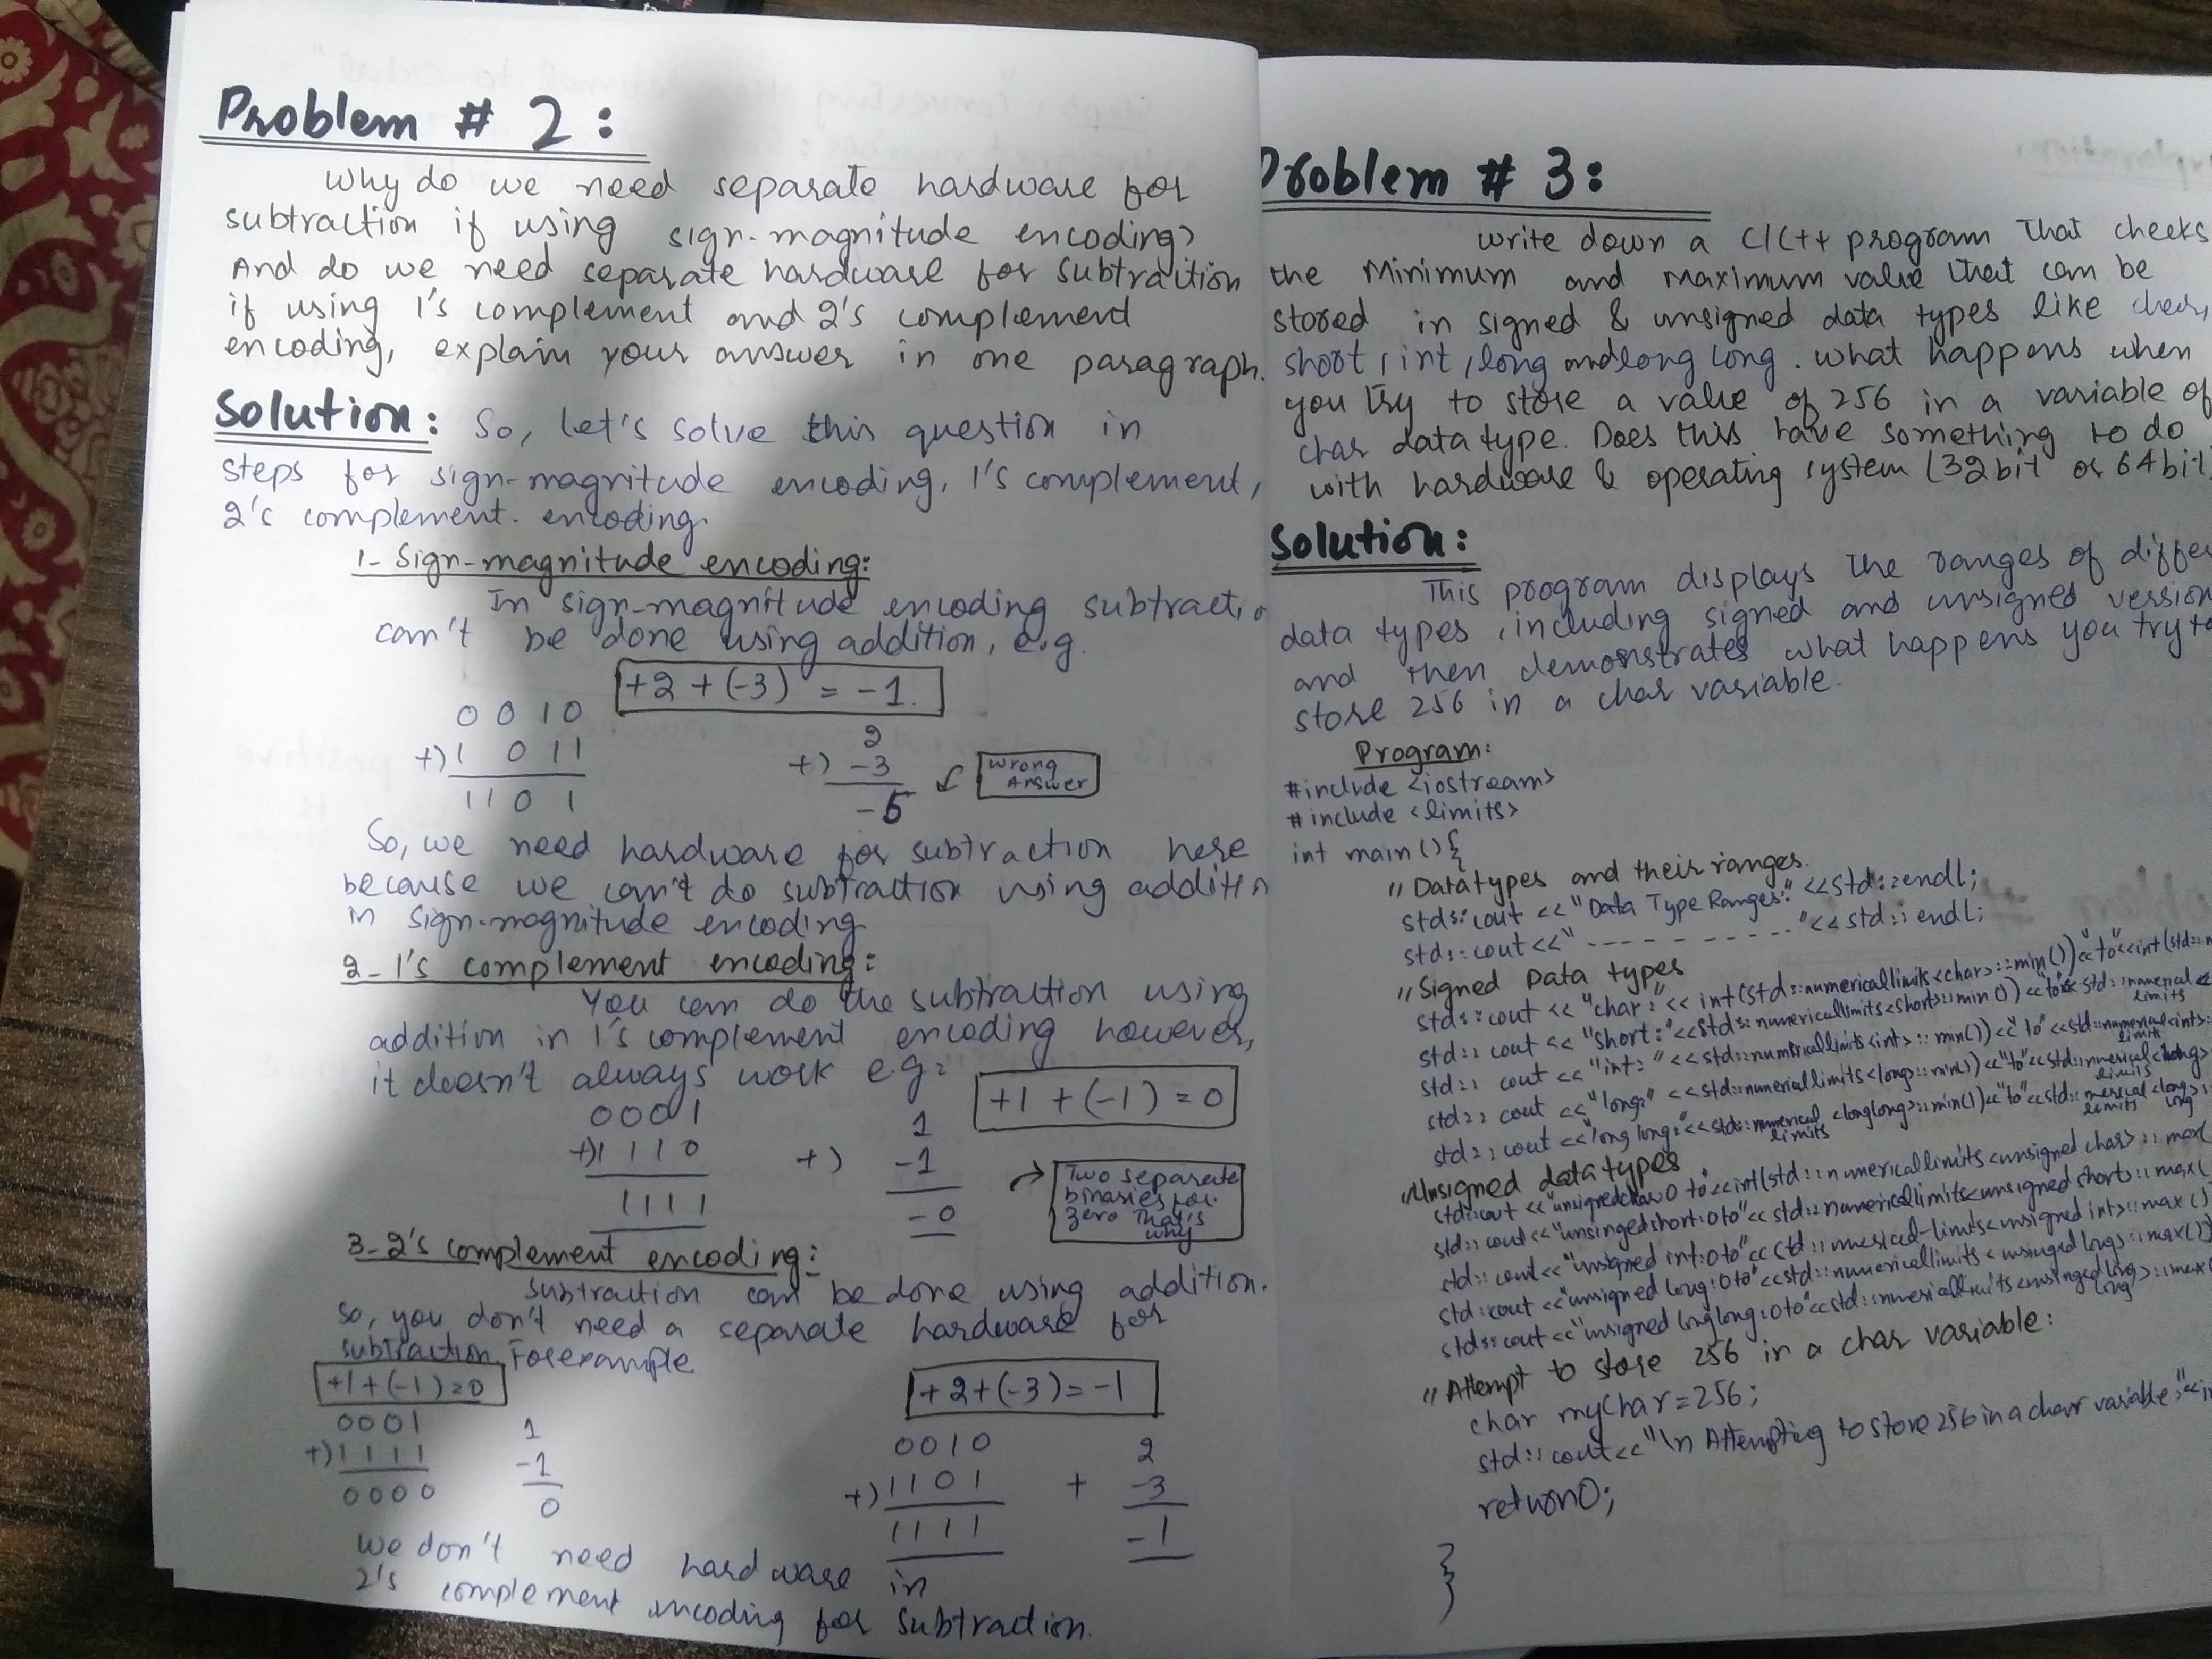 Problem # 2 :
Why do we need separate hardware for
subtraction if using sign-magnitude encoding?
And do we need separate hardware for subtraction
if using 1's complement and 2's complement
encoding, explain your answer in one paragraph.
Solution: So, let's solve this question in
steps for sign-magnitude encoding, 1's complement,
2's complement. encoding.
1- Sign-magnitude encoding:
In sign-magnitude encoding subtractio
can't be done using addition, e.g.
+2 + (-3) = -1.
0 0 1 0
+) 1 0 1 1
1 1 0 1
2
+) -3
-5
Wrong
Answer
So, we need hardware for subtraction here
because we can't do subtraction using additin
in sign-magnitude encoding
2- 1's complement encoding:
You can do the subtraction using
addition in 1's complement encoding however,
it doesn't always work e.g:
+1 + (-1) = 0
0 0 0 1
+) 1 1 1 0
1 1 1 1
1
+) -1
-0
Two separate
binaries for
zero that's
why
3- 2's complement encoding:
subtraction can be done using addition.
So, you don't need a separate hardware for
subtraction. For example
+1 + (-1) = 0
0 0 0 1
+) 1 1 1 1
0 0 0 0
1
-1
0
+2+(-3)= -1
0 0 1 0
+) 1 1 0 1
1 1 1 1
2
+ -3
-1
We don't need hardware in
2's complement encoding for subtraction.
Problem # 3:
Write down a C/C++ program that checks
the Minimum and Maximum value that can be
stored in signed & unsigned data types like char,
short, int, long and long long. what happens when
you try to store a value of 256 in a variable of
char data type. Does this have something to do
with hardware & operating system (32 bit or 64 bit)
Solution:
This program displays the ranges of differ
data types, including signed and unsigned version
and then demonstrates what happens you try to
store 256 in a char variable.
Program:
#include <iostream>
#include <limits>
int main(){
// Datatypes and their ranges.
std::cout << "Data Type Ranges:" << std::endl;
std::cout << "- - - - - - - - - - -" << std::endl;
// Signed Data types
std::cout << "char:" << int(std::numericallimits<char>::min()) << "to" << int(std::
std::cout << "Short:" << std::numericallimits<short>::min() << "to" << std::numerical limits <
std::cout << "int:" << std::numericallimits<int>::min()) << "to" << std::numerical limits <int>:
std::cout << "long:" << std::numericallimits<long>::min()) << "to" << std::numerical limits <long>
std::cout << "long long:" << std::numerical limits <longlong>::min() << "to" << std:: limits <long long>:
// Unsigned data types
std::cout << "unsigned char: 0 to" << int(std::numericallimits<unsigned char>::max(
std::cout << "unsinged short: 0 to" << std::numericallimits<unsigned short>::max(
std::cout << "unsigned int: 0 to" << -limits<unsigned int>::max()
std::cout << "unsigned long: 0 to" << std::numericallimits<unsinged long>::max()
std::cout << "unsigned long long: 0 to" << std:: <unsinged long long>::max(
// Attempt to store 256 in a char variable:
char myChar = 256;
std::cout << "\n Attempting to store 256 in a char variable:" <<
return 0;
}